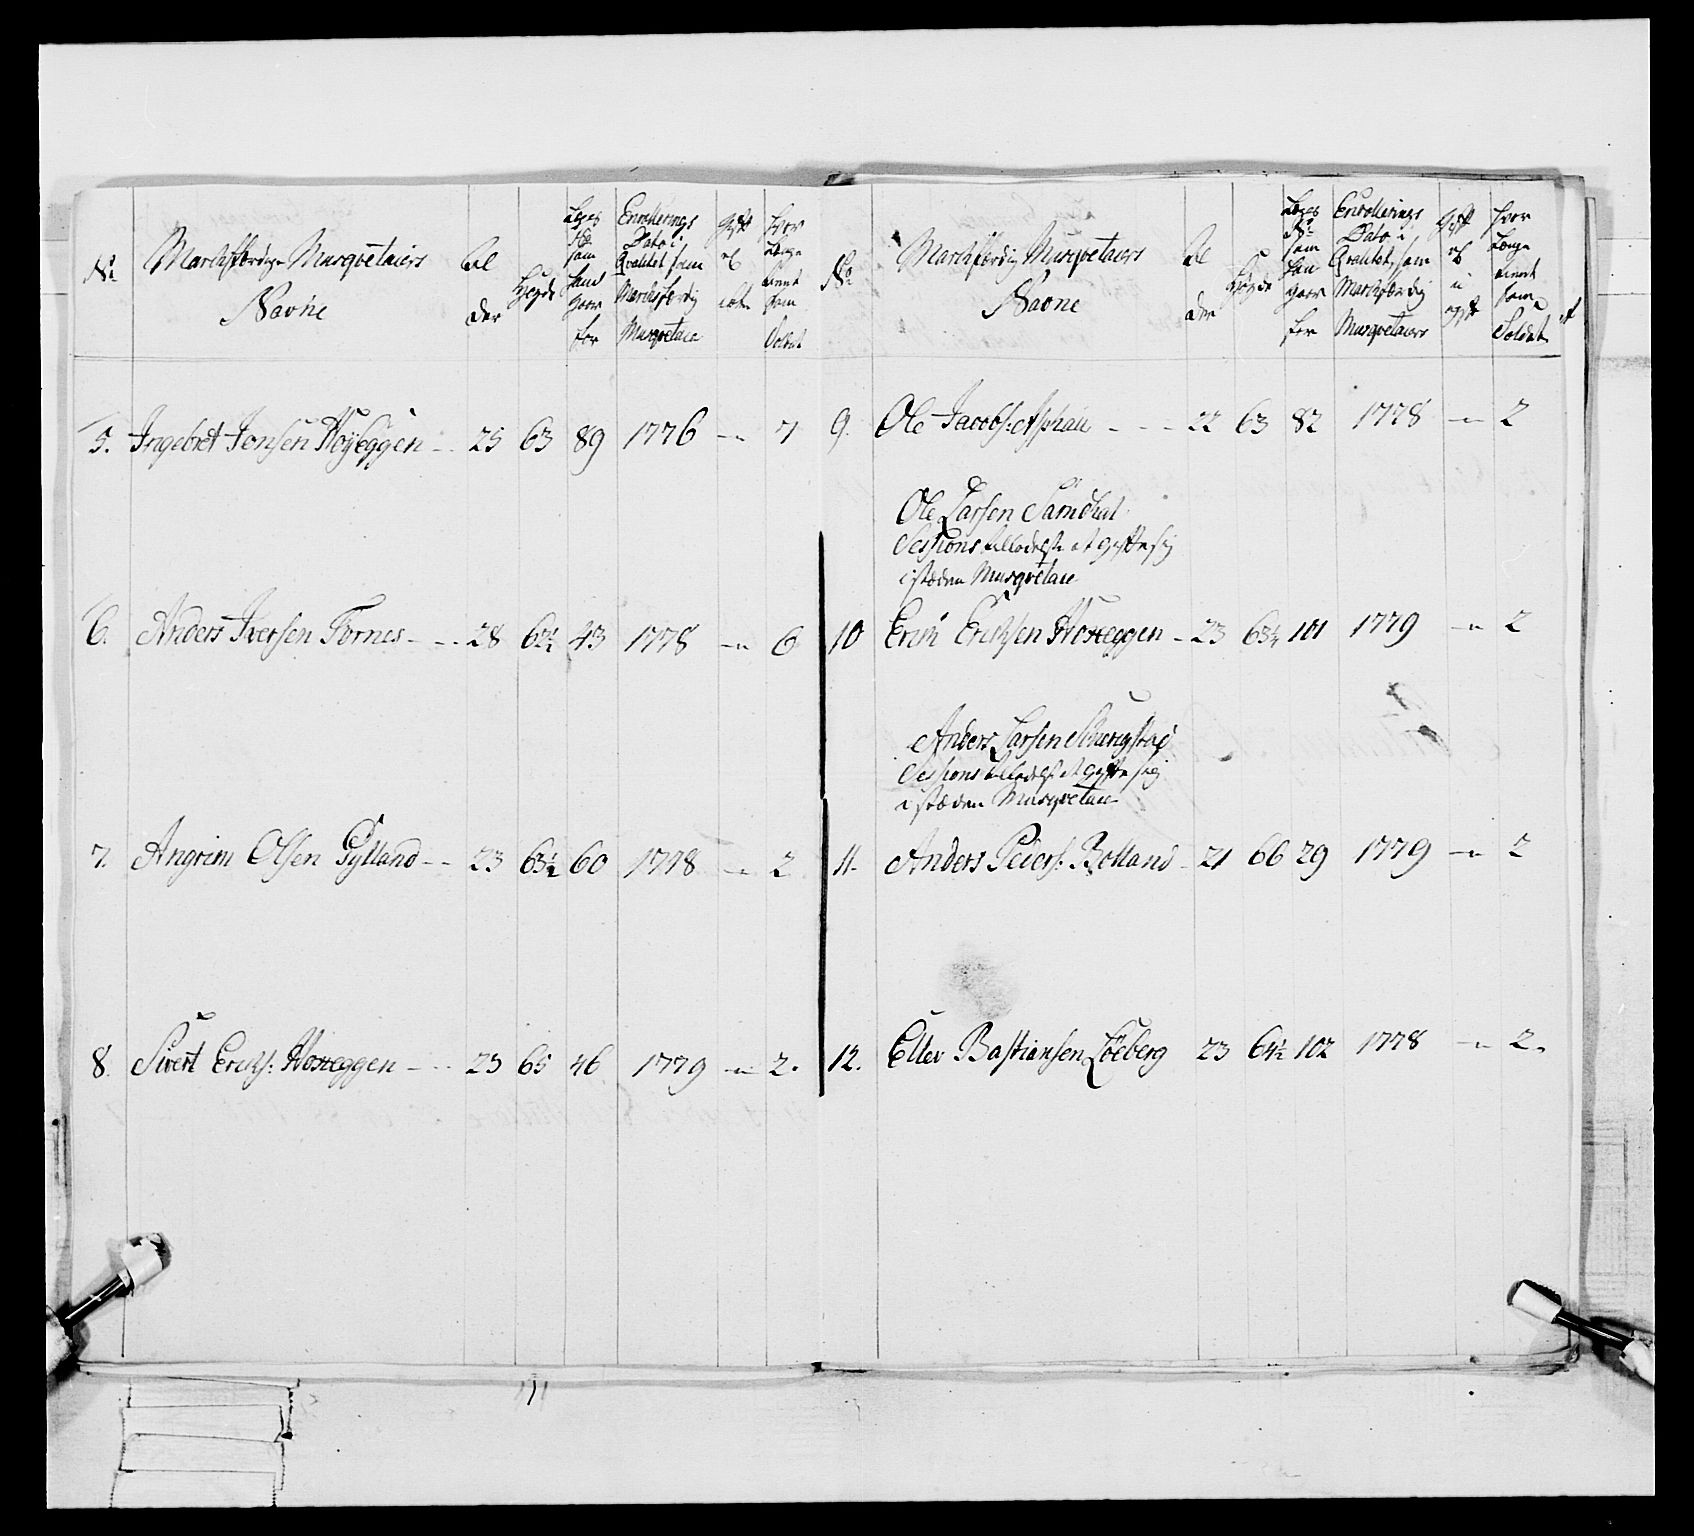 No
Marchfærdige Musqvetairs
Navne
Al
der
Høyde
Lægs
No
som
Hand
giør
for
Enrollerings
Dato i
Qvalitet som
Marchfærdig
Musqvetair
Hvor
Længe
tient
som
Soldat
5. Ingebret Jonsen Høyeggen 25 63 89 1776 — 7
6. Anders Iversen Fornes 28 62½ 43 1778 — 6
7. Angrim Olsen Gylland 23 63½ 60 1778 — 2
8. Sivert Erichs: Hoseggen 23 65 46 1779 — 2.
No
Marchfærdig Musqvetairs
Navne
Al
der
Høyde
Lægs
No
som
Han
giør
for
Enrollerings
Dato i
Qvalitet, som
Marchfærdig
Musqvetairs
Gift
u
gift
Hvor
Længe
tient
som
Soldat
9. Ole Jacobs: 22 63 82 1778 — 2
Ole Larsen
Sessions tilladelse at gifte sig
i stæden Musqvetair
10 Erich Erichsen Hoseggen 23 63½ 101 1779 — 2
Anders Larsen
Sessions tilladelse at gifte sig
i stæden Musqvetair
11. Anders Peders: Bolland 21 66 29 1779 — 2
12. Ellev Bastiansen Løeberg 23 64½ 102 1778 — 2.